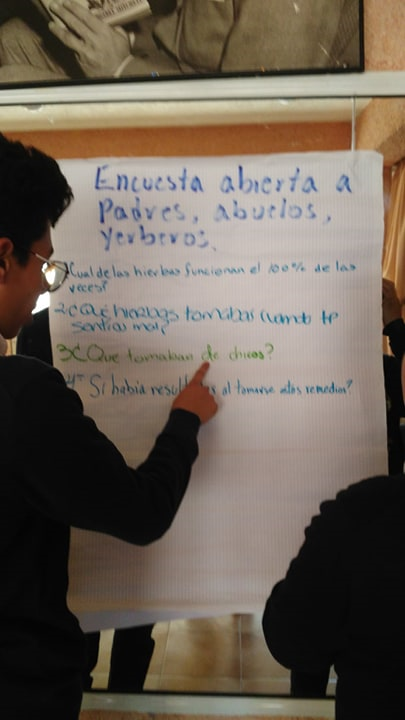 Encuesta abierta a
Padres, abuelos,
yerberos.
Cual de las hierbas funcionan el 100% de las
veces?
2¿Qué hierbas tomabas cuando te
sentías mal?
3¿Que tomaban de chicos?
4- Sí habia al tomarse estos remedios?